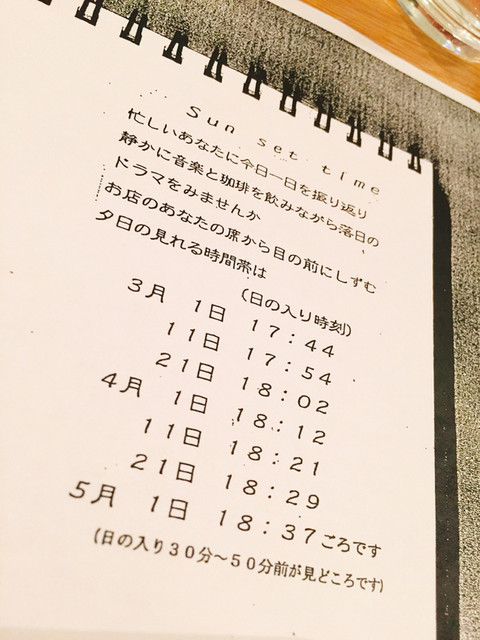 Sun set time
忙しいあなたに今日一日を振り返り
静かに音楽と珈琲を飲みながら落日の
ドラマをみませんか
お店のあなたの席から目の前にしずむ
夕日の見れる時間帯は
(日の入り時刻)
3月 1日 17:44
11日 17:54
21日 18:02
4月 1日 18:12
11日 18:21
21日 18:29
5月 1日 18:37ごろです
(日の入り30分~50分前が見どころです)